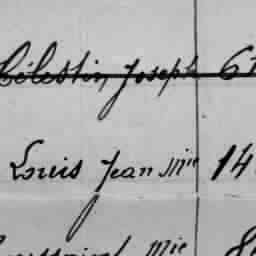 Célestin, Joseph 61
Louis Jean Mie 14
Mie